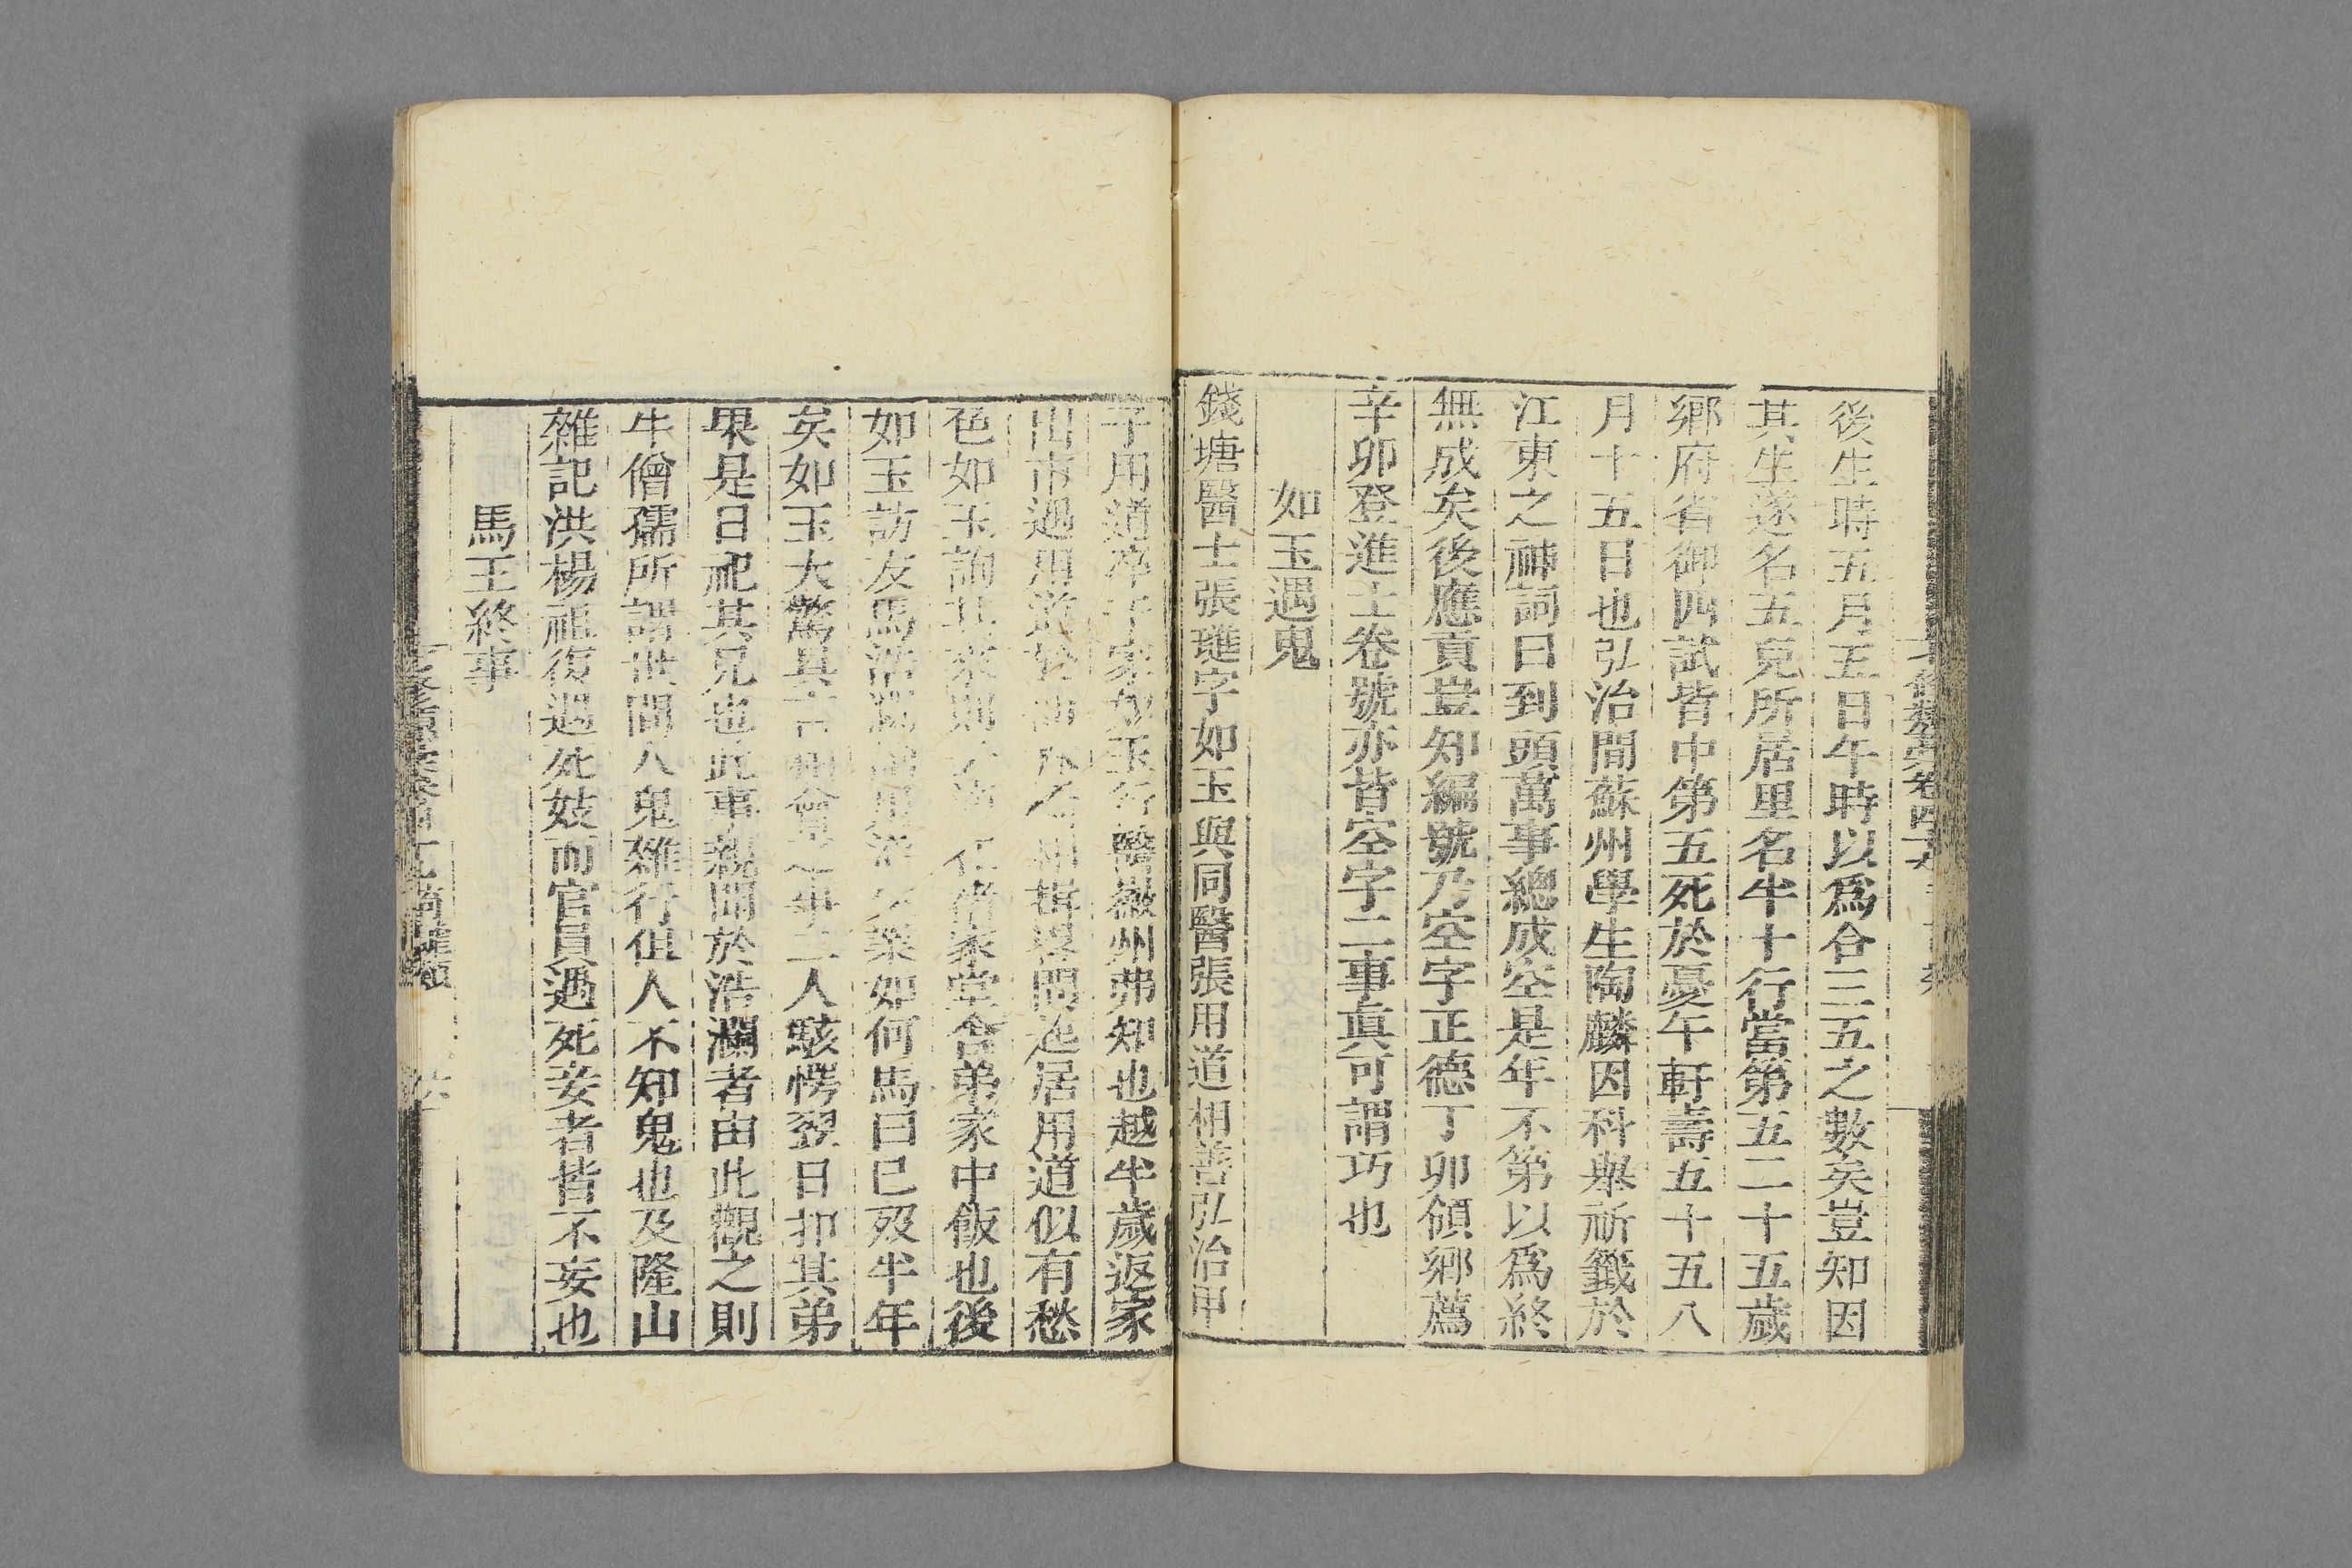 後生時五月五日午時以爲合三五之數矣豈知因
其生遂名五兒所居里名牛十行當第五二十五歲
鄉府省御四試皆中第五死於憂午軒壽五十五八
月十五日也弘治間蘇州學生陶麟因科舉祈籤於
江東之神詞曰到頭萬事總成空是年不第以爲終
無成矣後應貢豈知編號乃空字正德丁卯領鄉薦
辛卯登進士卷號亦皆空字二事眞可謂巧也
如玉遇鬼
錢塘醫士張璡字如玉與同醫張用道相善弘治甲
子用道卒于家如玉行醫徽州弗知也越半歲返家
出市遇用道於 揖畧問起居用道似有愁
色如玉詢其來則 家堂舍弟家中飯也後
如玉訪友馬浩瀾 業如何馬曰已歿半年
矣如玉大驚具言 會之事二人駭愕翌日扣其弟
果是日祀其兄也此事親聞於浩瀾者由此觀之則
牛僧孺所謂世間人鬼雜行但人不知鬼也及隆山
雜記洪楊祖復遇死妓而官員遇死妾者皆不妄也
馬王終事
七修類稿卷四十